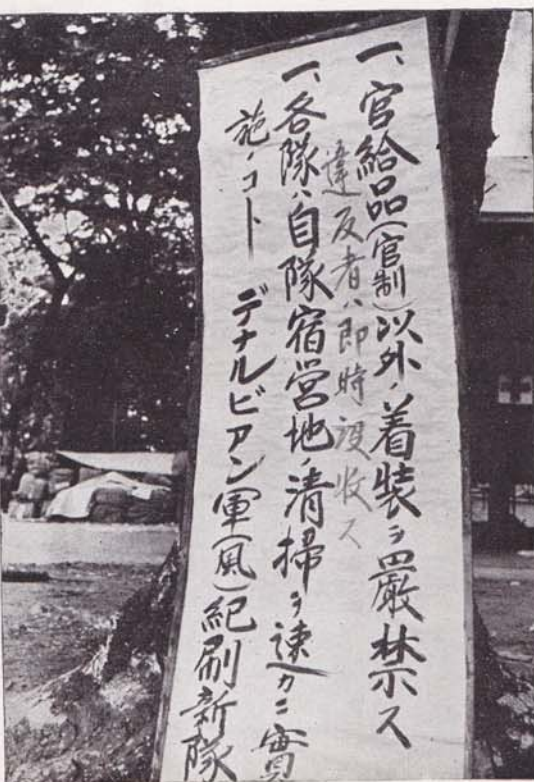 一、官給品(官制)以外ノ着裝ヲ嚴禁ス
違反者ハ即時沒收ス
一、各隊ハ自隊宿営地ノ清掃ヲ速カニ實
施ノコト
デナルビアン軍(風)紀刷新隊